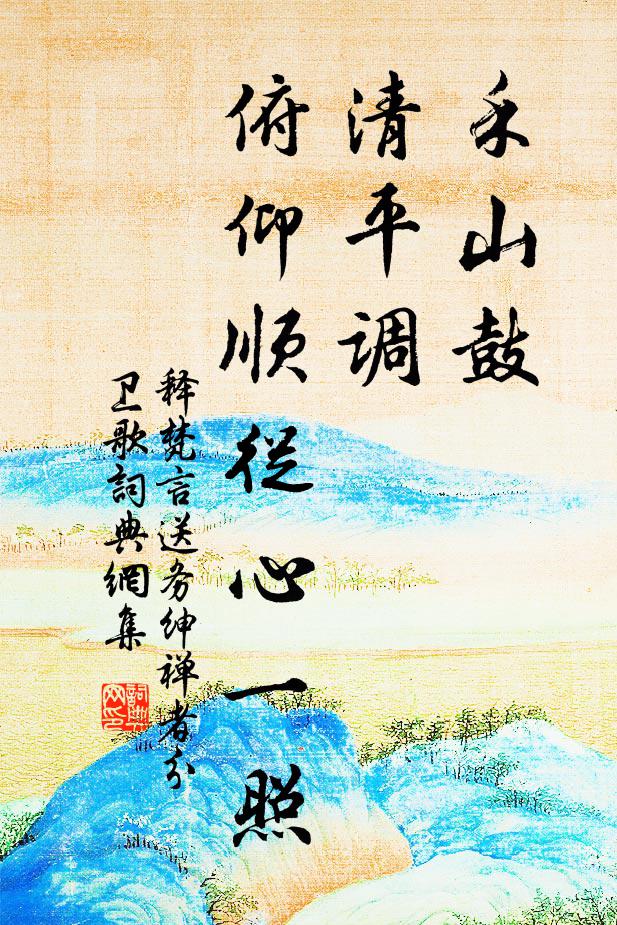 禾山鼓
清平调
俯仰顺從心一照
释梵言送务绅禅者分
卫歌詞典網集
詞典
网印